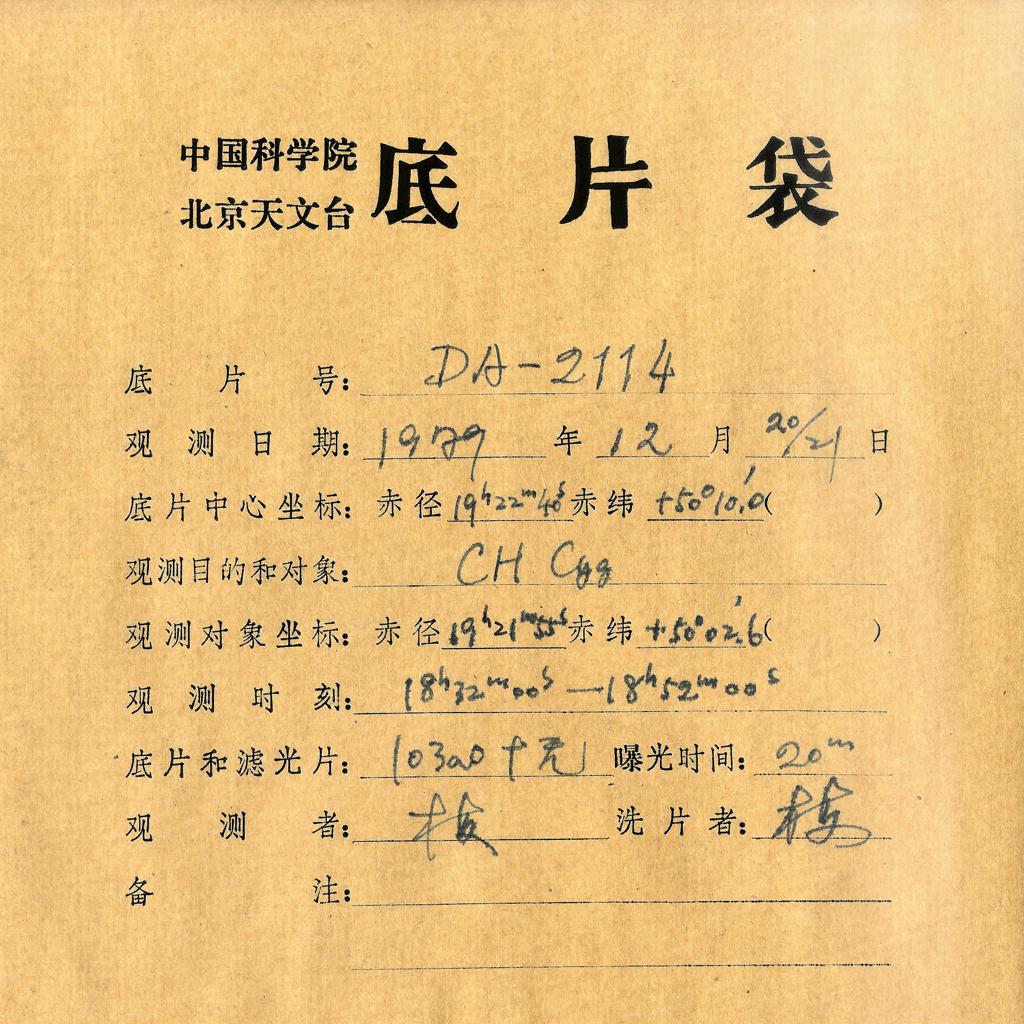 中国科学院
北京天文台
底片袋
底片号: DA-2114
观测日期: 1979年12月20/21日
底片中心坐标: 赤径 19h22m40s 赤纬 +50°10.′0( )
观测目的和对象: CH Cyg
观测对象坐标: 赤径 19h21m55s 赤纬 +50°02.′6( )
观测时刻: 18h32m00s—18h52m00s
底片和滤光片: 103aO+无 曝光时间: 20m
观测者: 洗片者:
备注: